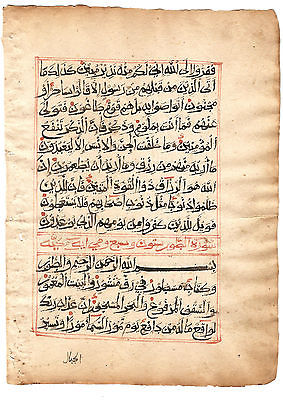 ففروا الى الله انى لكم منه نذير مبين كذلك ما
اتى الذين من قبلهم من رسول الا قالوا ساحر او
مجنون اتواصوا به بل هم قوم طاغون فتول
عنهم فما انت بملوم وذكر فان الذكرى تنفع
المؤمنين وما خلقت الجن والانس الا ليعبدون
ما اريد منهم من رزق وما اريد ان يطعمون ان
الله هو الرزاق ذو القوة المتين فان للذين
ظلموا ذنوبا مثل ذنوب اصحابهم فلا يستعجلون
فويل للذين كفروا من يومهم الذى يوعدون
سورة الطور
بسم الله الرحمن الرحيم والطور
وكتاب مسطور فى رق منشور والبيت المعمور
والسقف المرفوع والبحر المسجور ان عذاب ربك
لواقع ما له من دافع يوم تمور السماء مورا وتسير
الجبال